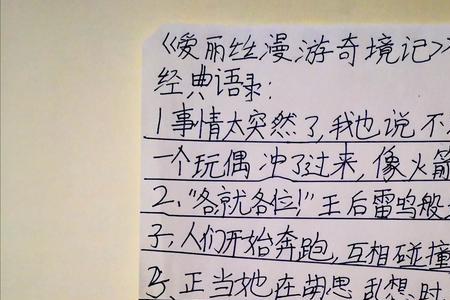 《爱丽丝漫游奇境记》
经典语录:
1事情太突然了,我也说不
一个玩偶冲了过来,像火箭
2."各就各位!"王后雷鸣般
子,人们开始奔跑,互相碰撞
3.正当她在胡思乱想时